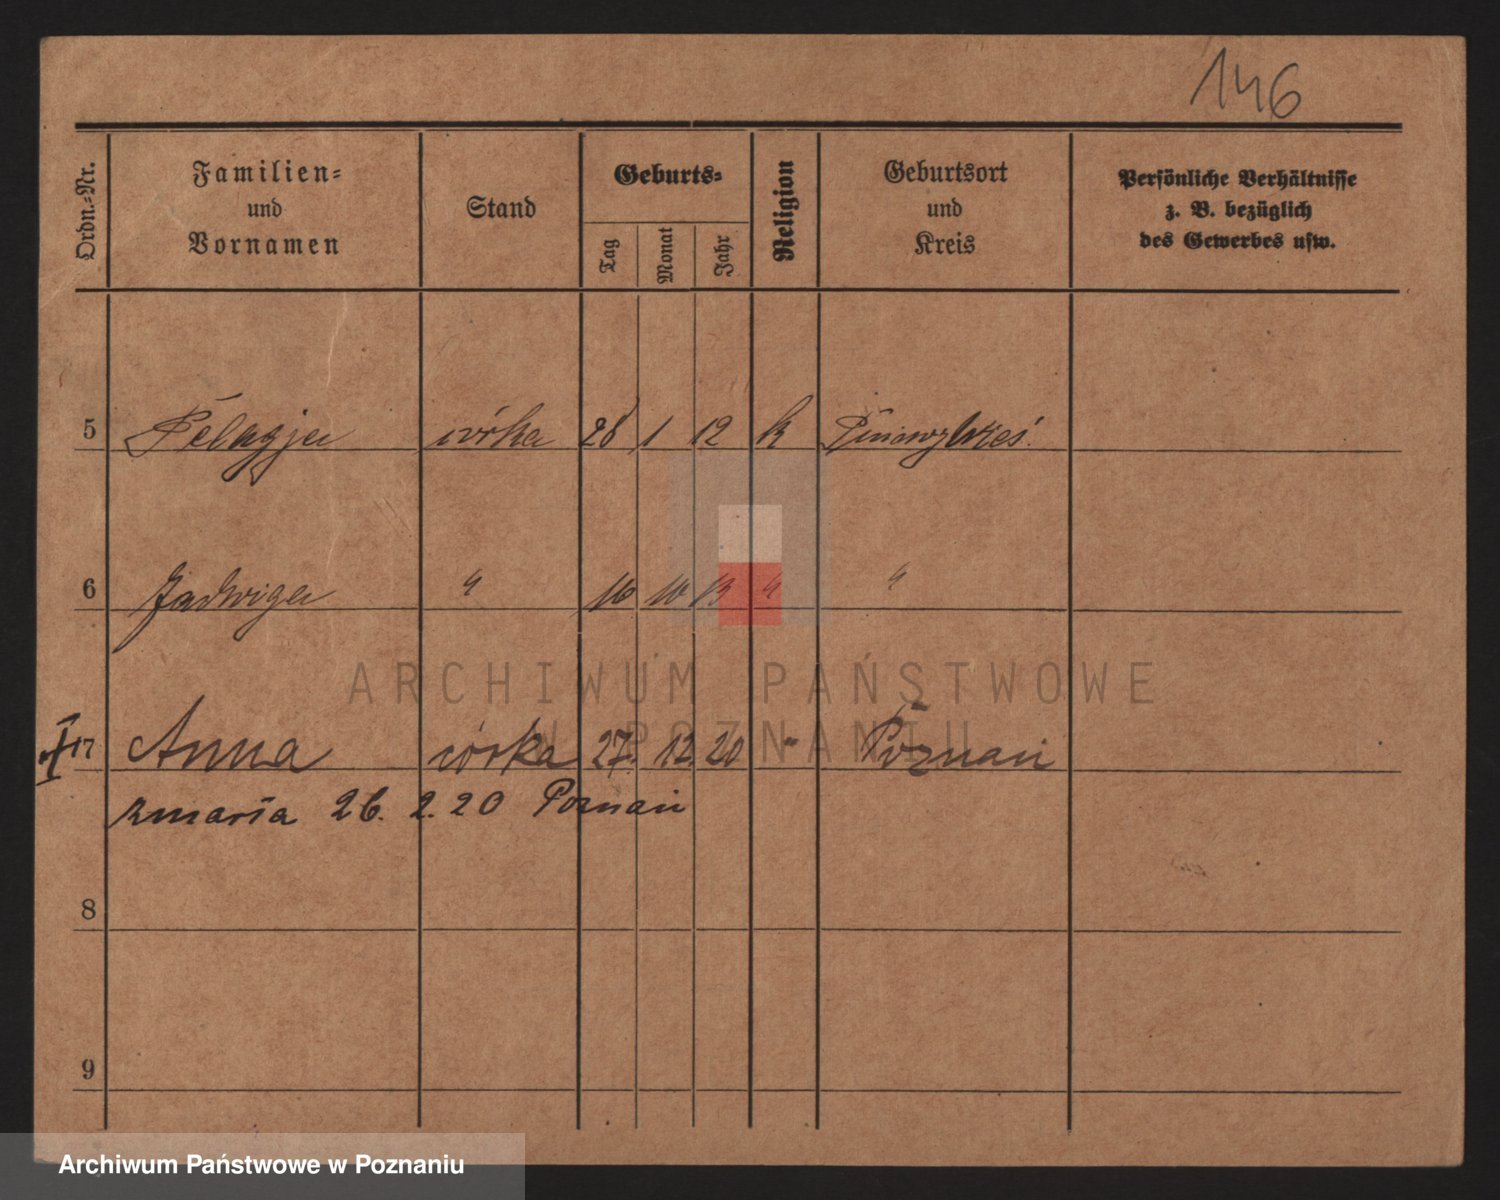 146
Ordn.-Nr. Familien- und Vornamen Stand Geburts- Tag Monat Jahr Religion Geburtsort und Kreis Persönliche Verhältnisse z. B. bezüglich des Gewerbes usw.
5 Pelagja córka 28 1 12 k
6 Jadwiga " 16 10 13 " "
ARCHIWUM PAŃSTWOWE
W POZNANIU
7 Anna córka 27. 12. 20 " Poznań
zmarła 26. 2. 20 Poznań
8
9
Archiwum Państwowe w Poznaniu